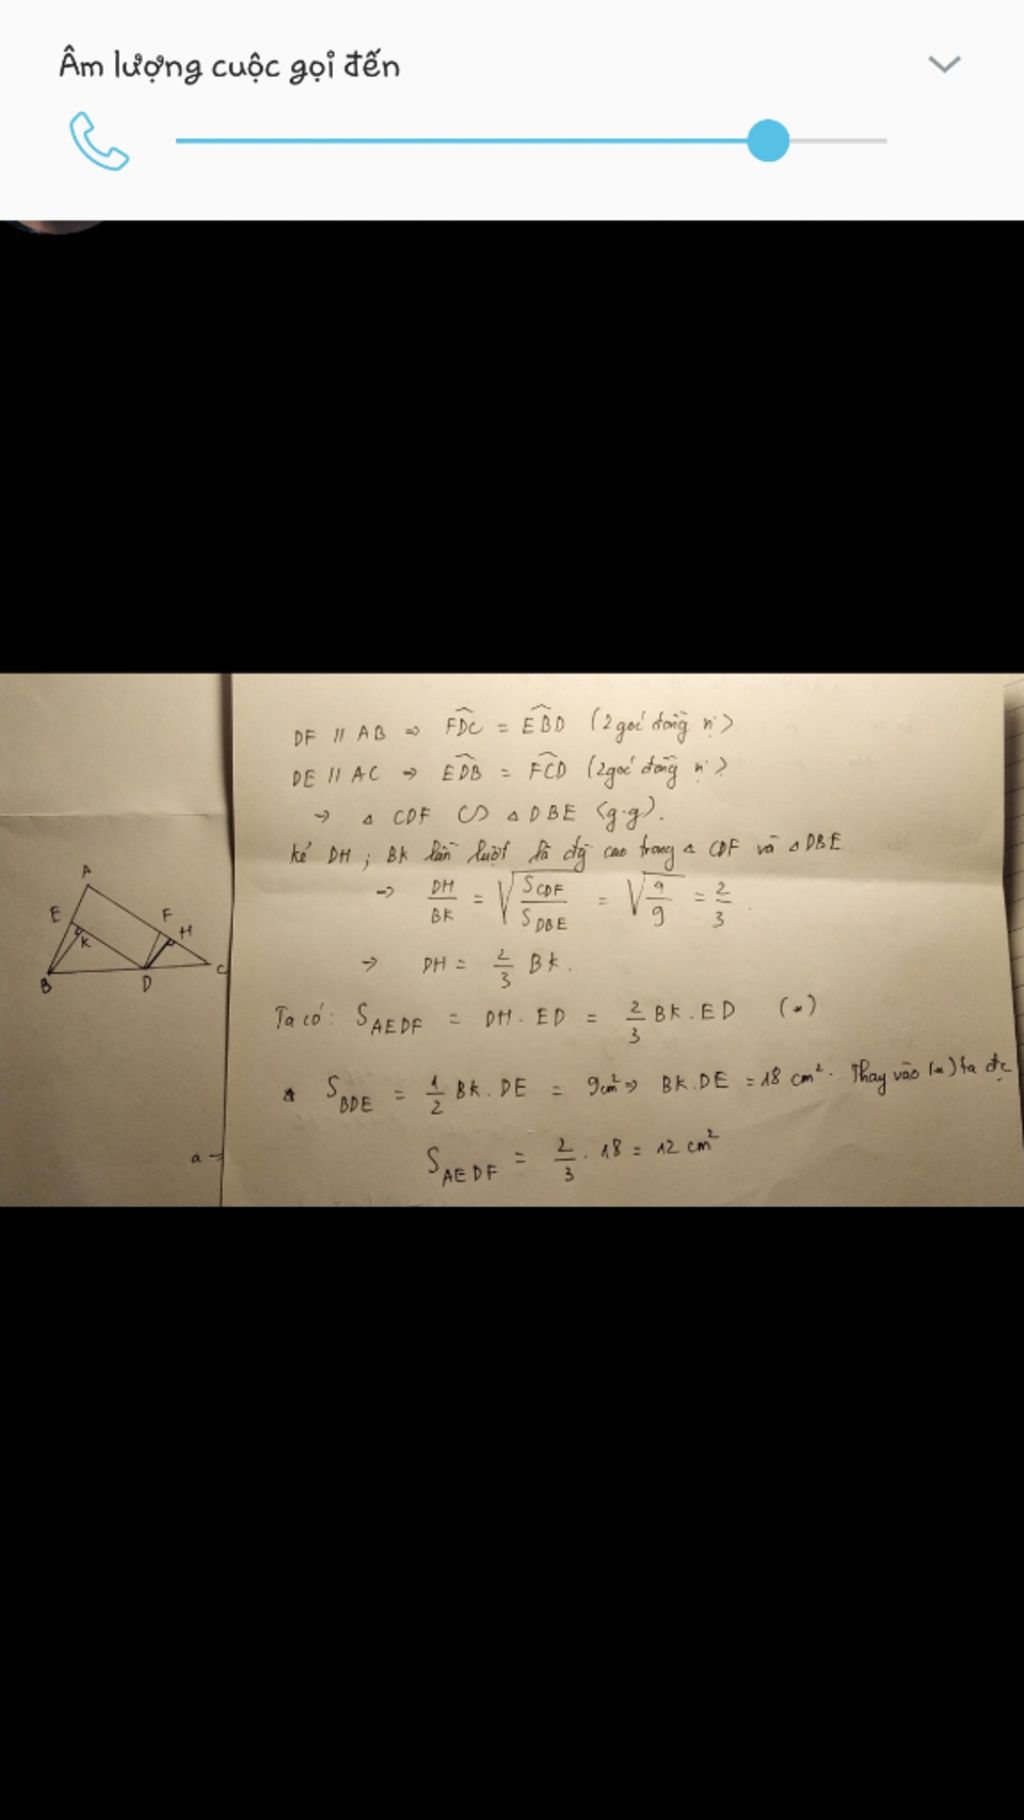 Âm lượng cuộc gọi đến
DF // AB ⇒ F̂DC = ÊBD (2 góc đồng vị)
DE // AC → ÊDB = F̂CD (2 góc đồng vị)
→ △ CDF ∽ △ DBE (g.g).
kẻ DH ; BK lần lượt là đg cao trong △ CDF và △ DBE
→ DH/BK = √(S CDF / S DBE) = √(4/9) = 2/3.
→ DH = 2/3 BK.
Ta có: S AEDF = DH. ED = 2/3 BK. ED (*)
S BDE = 1/2 BK. DE = 9cm² ⇒ BK. DE = 18 cm². Thay vào (*) ta đc
S AEDF = 2/3 . 18 = 12 cm²
A
E
F
H
K
B
D
C
a →